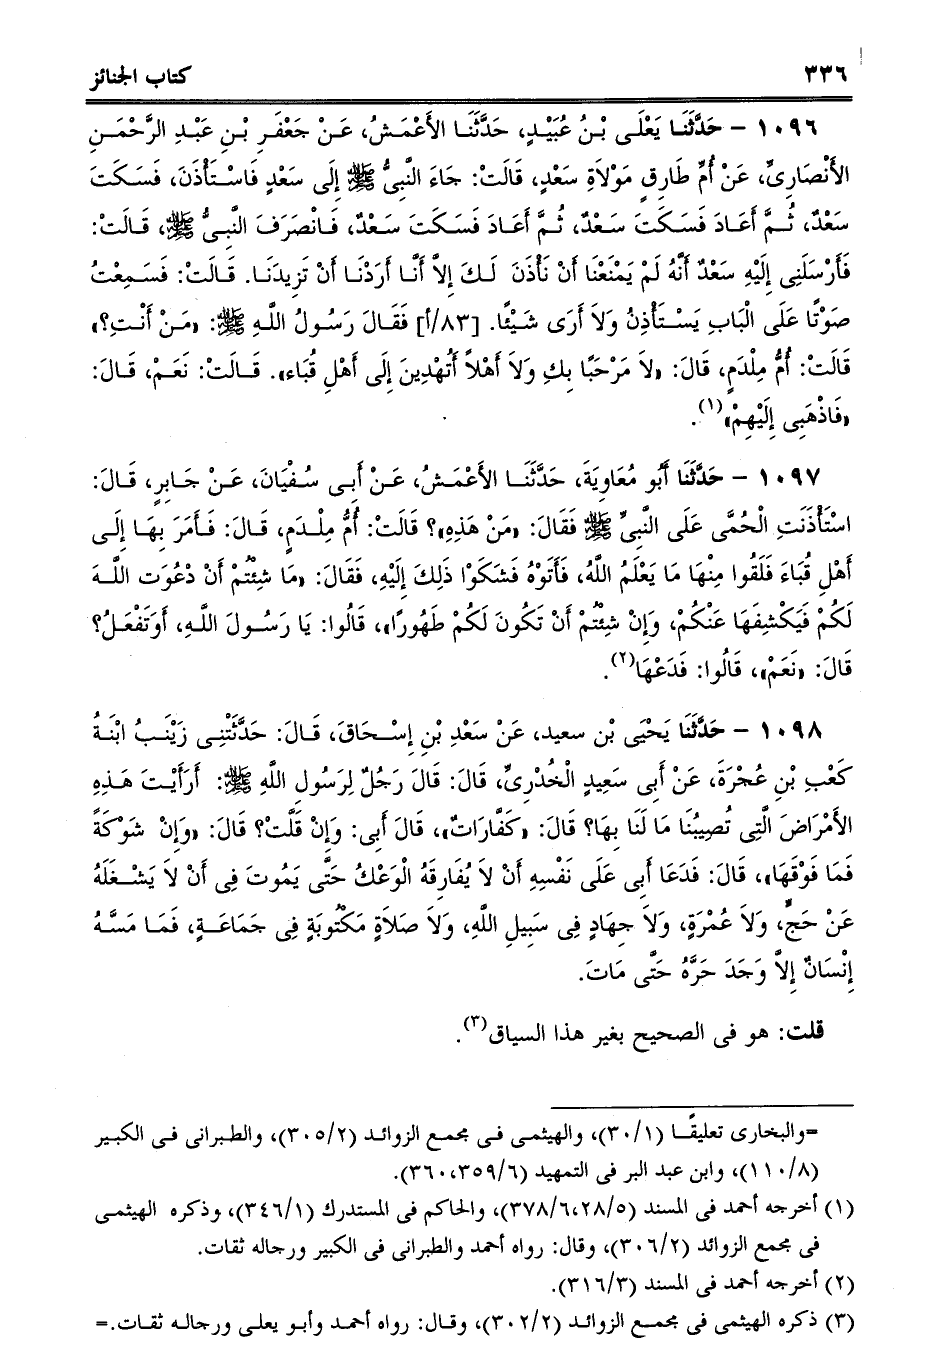 ٣٣٦ كتاب الجنائز
١٠٩٦ – حَدَّثَنَا يَعْلَى بْنُ عُبَيْدٍ، حَدَّثَنَا الأَعْمَشُ، عَنْ جَعْفَرِ بْنِ عَبْدِ الرَّحْمَنِ
الأَنْصَارِىِّ، عَنْ أُمِّ طَارِقٍ مَوْلَاةِ سَعْدٍ، قَالَتْ: جَاءَ النَّبِىُّ ﷺ إِلَى سَعْدٍ فَاسْتَأْذَنَ، فَسَكَتَ
سَعْدٌ، ثُمَّ أَعَادَ فَسَكَتَ سَعْدٌ، ثُمَّ أَعَادَ فَسَكَتَ سَعْدٌ، فَانْصَرَفَ النَّبِىُّ ﷺ، قَالَتْ:
فَأَرْسَلَنِى إِلَيْهِ سَعْدٌ أَنَّهُ لَمْ يَمْنَعْنَا أَنْ نَأْذَنَ لَكَ إِلاَّ أَنَّا أَرَدْنَا أَنْ تَزِيدَنَا. قَالَتْ: فَسَمِعْتُ
صَوْتًا عَلَى الْبَابِ يَسْتَأْذِنُ وَلاَ أَرَى شَيْئًا. [٨٣/أ] فَقَالَ رَسُولُ اللَّهِ ﷺ: «مَنْ أَنْتِ؟»
قَالَتْ: أُمُّ مِلْدَمٍ، قَالَ: «لاَ مَرْحَبًا بِكِ وَلاَ أَهْلاً أَتُهْدِينَ إِلَى أَهْلِ قُبَاءَ». قَالَتْ: نَعَمْ، قَالَ:
«فَاذْهَبِى إِلَيْهِمْ»(١).
١٠٩٧ – حَدَّثَنَا أَبُو مُعَاوِيَةَ، حَدَّثَنَا الأَعْمَشُ، عَنْ أَبِى سُفْيَانَ، عَنْ جَابِرٍ، قَالَ:
اسْتَأْذَنَتِ الْحُمَّى عَلَى النَّبِىِّ ﷺ فَقَالَ: «مَنْ هَذِهِ»؟ قَالَتْ: أُمُّ مِلْدَمٍ، قَالَ: فَأَمَرَ بِهَا إِلَى
أَهْلِ قُبَاءَ فَلَقُوا مِنْهَا مَا يَعْلَمُ اللَّهُ، فَأَتَوْهُ فَشَكَوْا ذَلِكَ إِلَيْهِ، فَقَالَ: «مَا شِئْتُمْ أَنْ دْعُوَت اللَّهَ
لَكُمْ فَيَكْشِفَهَا عَنْكُمْ، وَإِنْ شِئْتُمْ أَنْ تَكُونَ لَكُمْ طَهُورًا»، قَالُوا: يَا رَسُولَ اللَّهِ، أَوَتَفْعَلُ؟
قَالَ: «نَعَمْ»، قَالُوا: فَدَعْهَا(٢).
١٠٩٨ – حَدَّثَنَا يَحْيَى بن سعيد، عَنْ سَعْدِ بْنِ إِسْحَاقَ، قَالَ: حَدَّثَتْنِى زَيْنَبُ ابْنَةُ
كَعْبِ بْنِ عُجْرَةَ، عَنْ أَبِى سَعِيدٍ الْخُدْرِىِّ، قَالَ: قَالَ رَجُلٌ لِرَسُولِ اللَّهِ ﷺ: أَرَأَيْتَ هَذِهِ
الأَمْرَاضَ الَّتِى تُصِيبُنَا مَا لَنَا بِهَا؟ قَالَ: «كَفَّارَاتٌ»، قَالَ أَبِى: وَإِنْ قَلَّتْ؟ قَالَ: «وَإِنْ شَوْكَةً
فَمَا فَوْقَهَا»، قَالَ: فَدَعَا أَبِى عَلَى نَفْسِهِ أَنْ لاَ يُفَارِقَهُ الْوَعْكُ حَتَّى يَمُوتَ فِى أَنْ لاَ يَشْغَلَهُ
عَنْ حَجٍّ، وَلاَ عُمْرَةٍ، وَلاَ جِهَادٍ فِى سَبِيلِ اللَّهِ، وَلاَ صَلاَةٍ مَكْتُوبَةٍ فِى جَمَاعَةٍ، فَمَا مَسَّهُ
إِنْسَانٌ إِلاَّ وَجَدَ حَرَّهُ حَتَّى مَاتَ.
قلت: هو فى الصحيح بغير هذا السياق(٣).
=والبخارى تعليقًا (٣٠/١)، والهيثمى فى مجمع الزوائد (٣٠٥/٢)، والطبرانى فى الكبير
(١١٠/٨)، وابن عبد البر فى التمهيد (٣٦٠،٣٥٩/٦).
(١) أخرجه أحمد فى المسند (٣٧٨/٦،٢٨/٥)، والحاكم فى المستدرك (٣٤٦/١)، وذكره الهيثمى
فى مجمع الزوائد (٣٠٦/٢)، وقال: رواه أحمد والطبرانى فى الكبير ورجاله ثقات.
(٢) أخرجه أحمد فى المسند (٣١٦/٣).
(٣) ذكره الهيثمى فى مجمع الزوائد (٣٠٢/٢)، وقال: رواه أحمد وأبو يعلى ورجاله ثقات.=